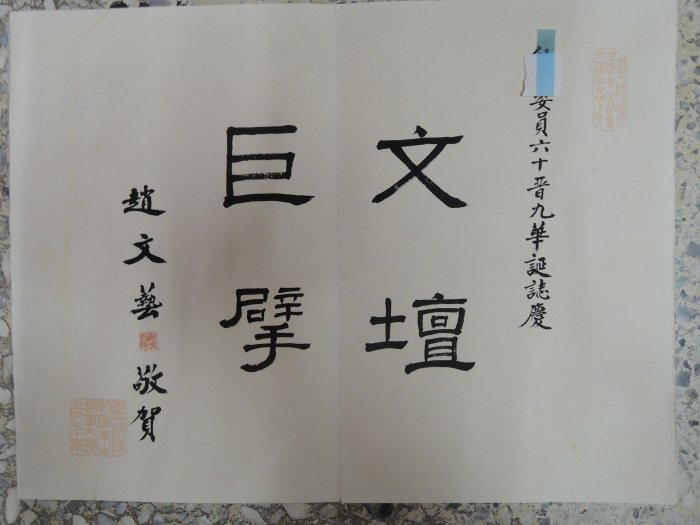 委員六十晉九華誕誌慶
文壇
巨擘
趙文藝 敬賀